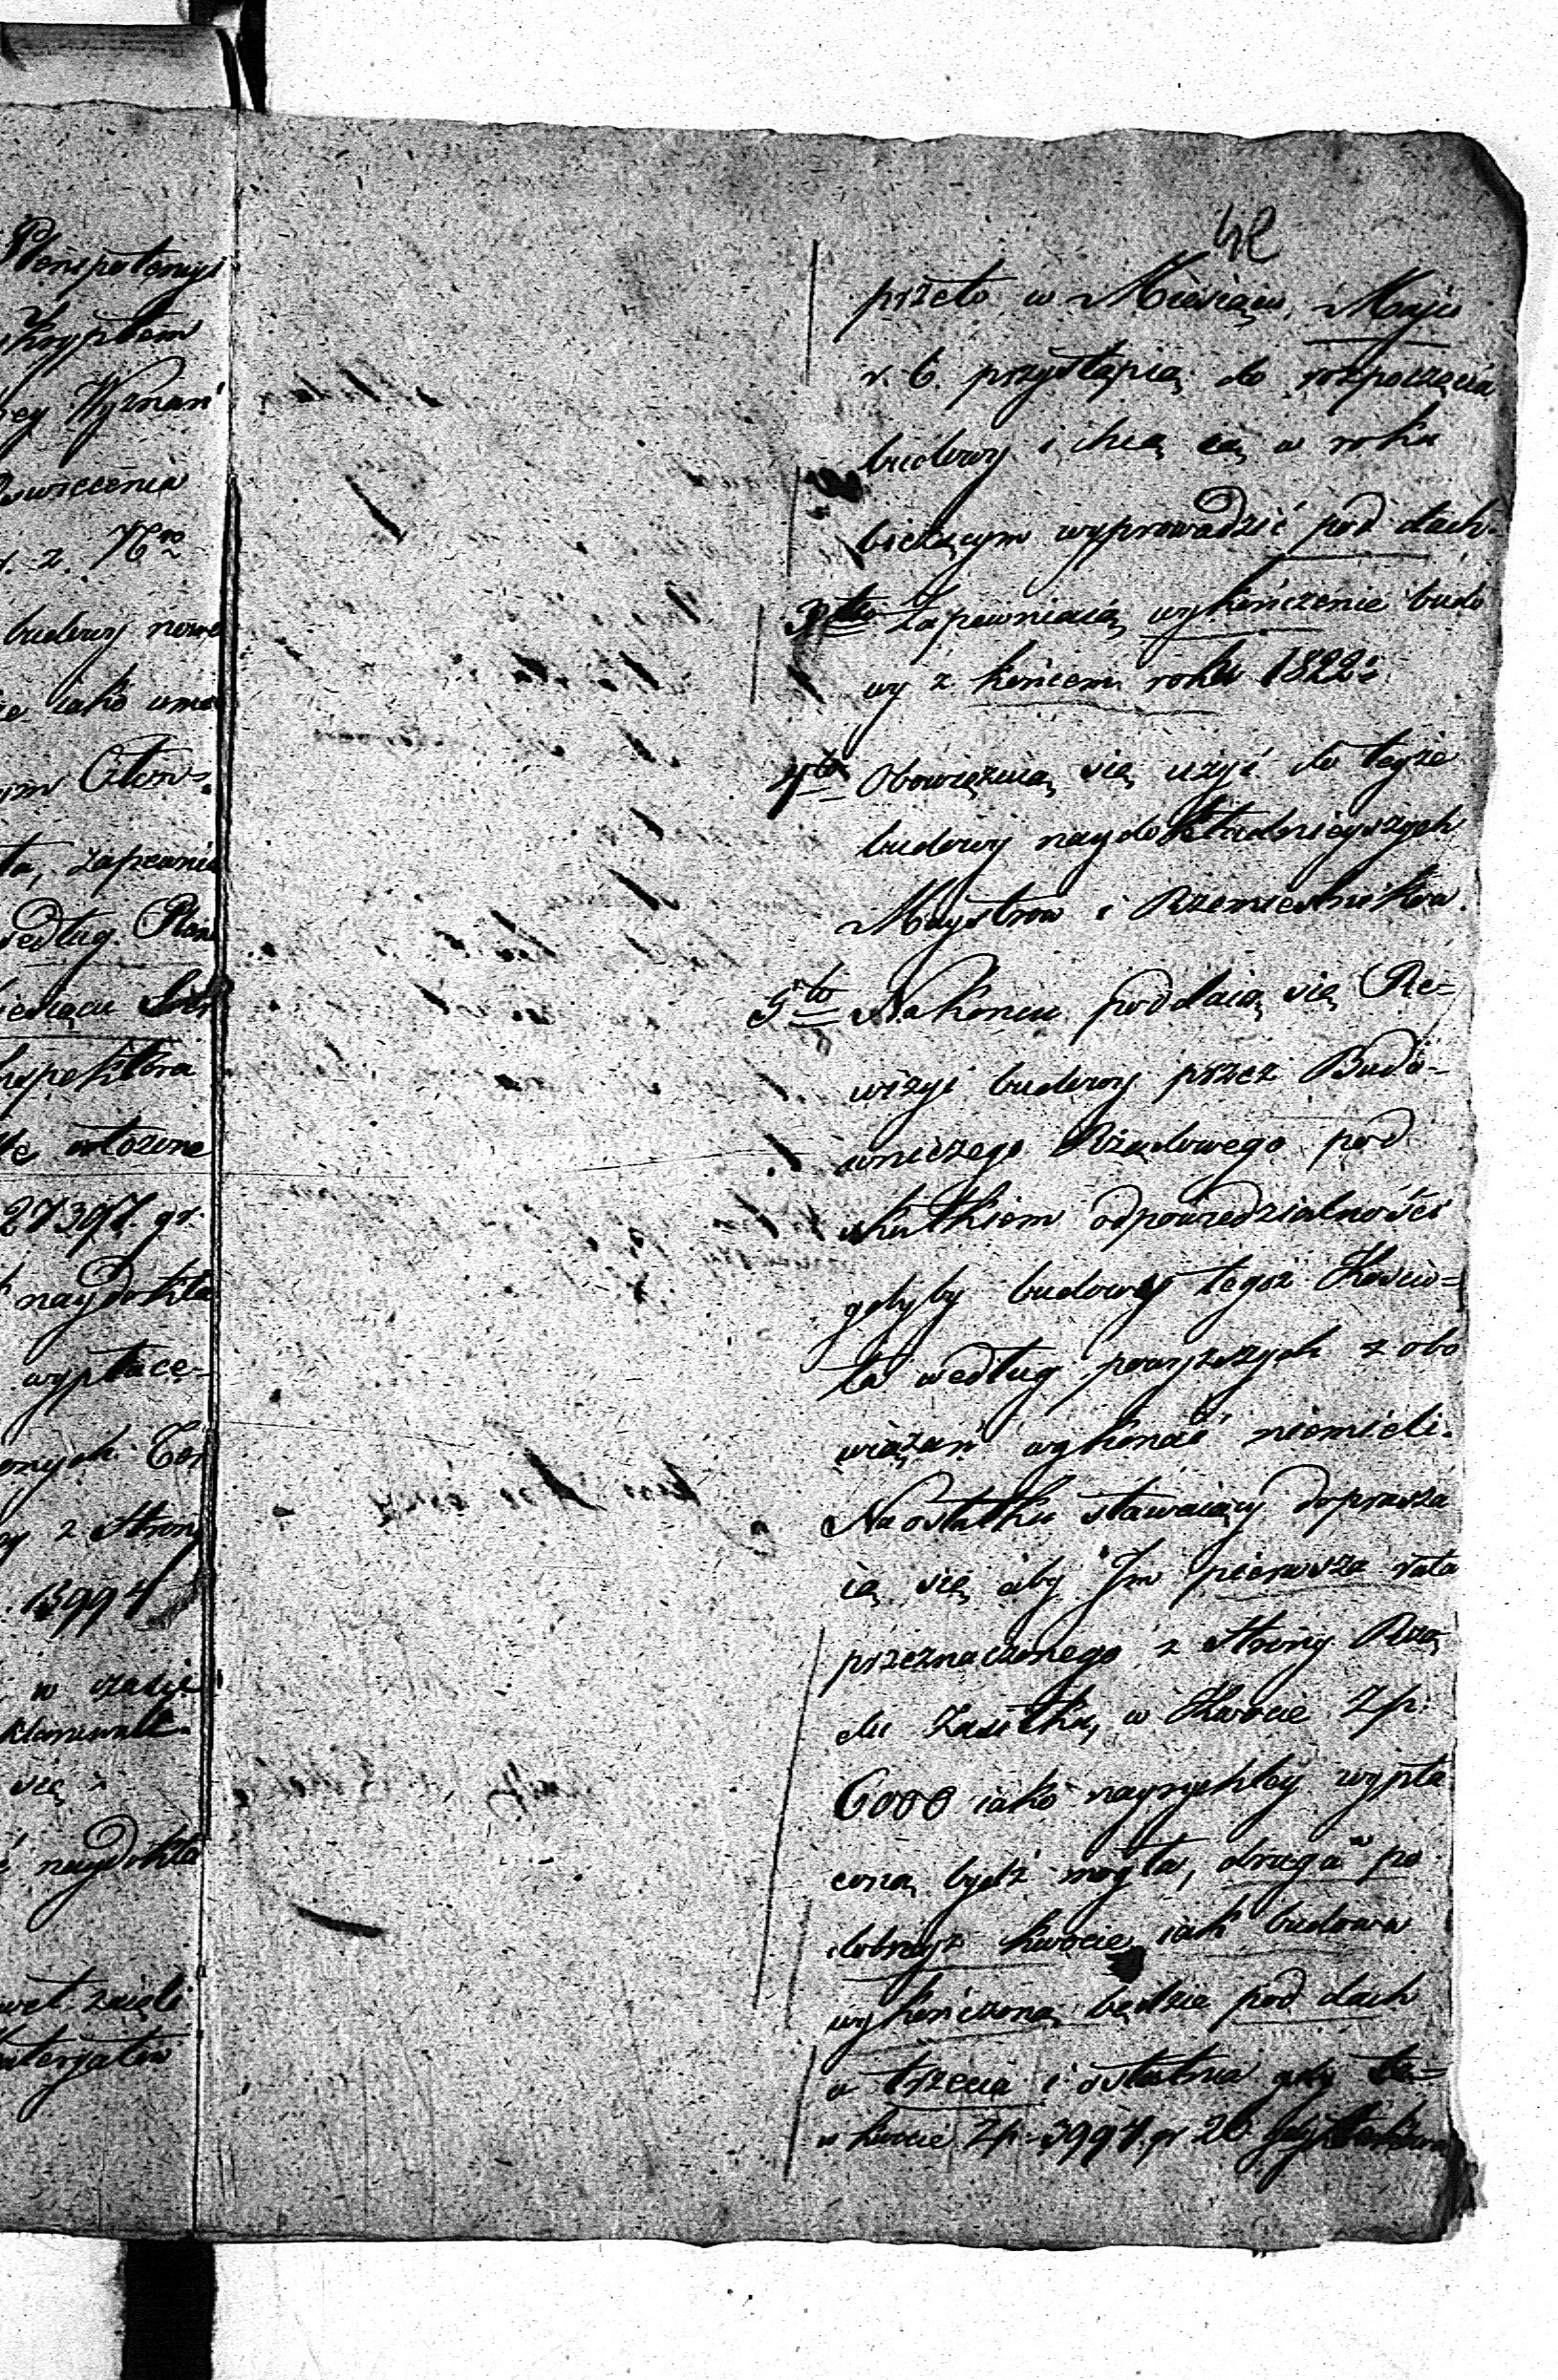 Plenipotencyi
skryptem
ney Wyznań
Oświecenia
r. z. Nro
budowy nowe
ie iako uma
ta, zapewnia
według Plan
Miesiącu
nspektora
włożone
27397. gr.
naydokła
wypłace-
onych
z Strony
15994
w czasie
się
naydokła
42
przeto w Miesiącu Maju
r. b. przystąpią do rozpoczęcia
budowy i chcą ią w roku
bieżącym wyprowadzić pod dach.
3tio Zapewniaią wykończenie budo
wy z końcem roku 1822.
4to Obowięzuią się użyć do teyże
budowy naydokładnieyszych
Maystrów i Rzemieślników.
5to Nakoniec poddaią się Re-
wizyi budowy przez Budo-
wniczego Rządowego pod
skutkiem odpowiedzialności
gdyby budowy tegoż Kościo-
ła według powyższych zobo
wiązań wykonać niemieli.
Naostatku stawaiący doprasza
ią się aby Im pierwsza rata
przeznaczonego z Strony Rzą
du Zasiłku, w Kwocie Zp.
6000 iako nayrychley wypła
coną bydź mogła, druga w po
dobnejż kwocie iak budowa
wykończoną będzie pod dach
a trzecia i ostatnia
w kwocie Zp. 3994. gr 26